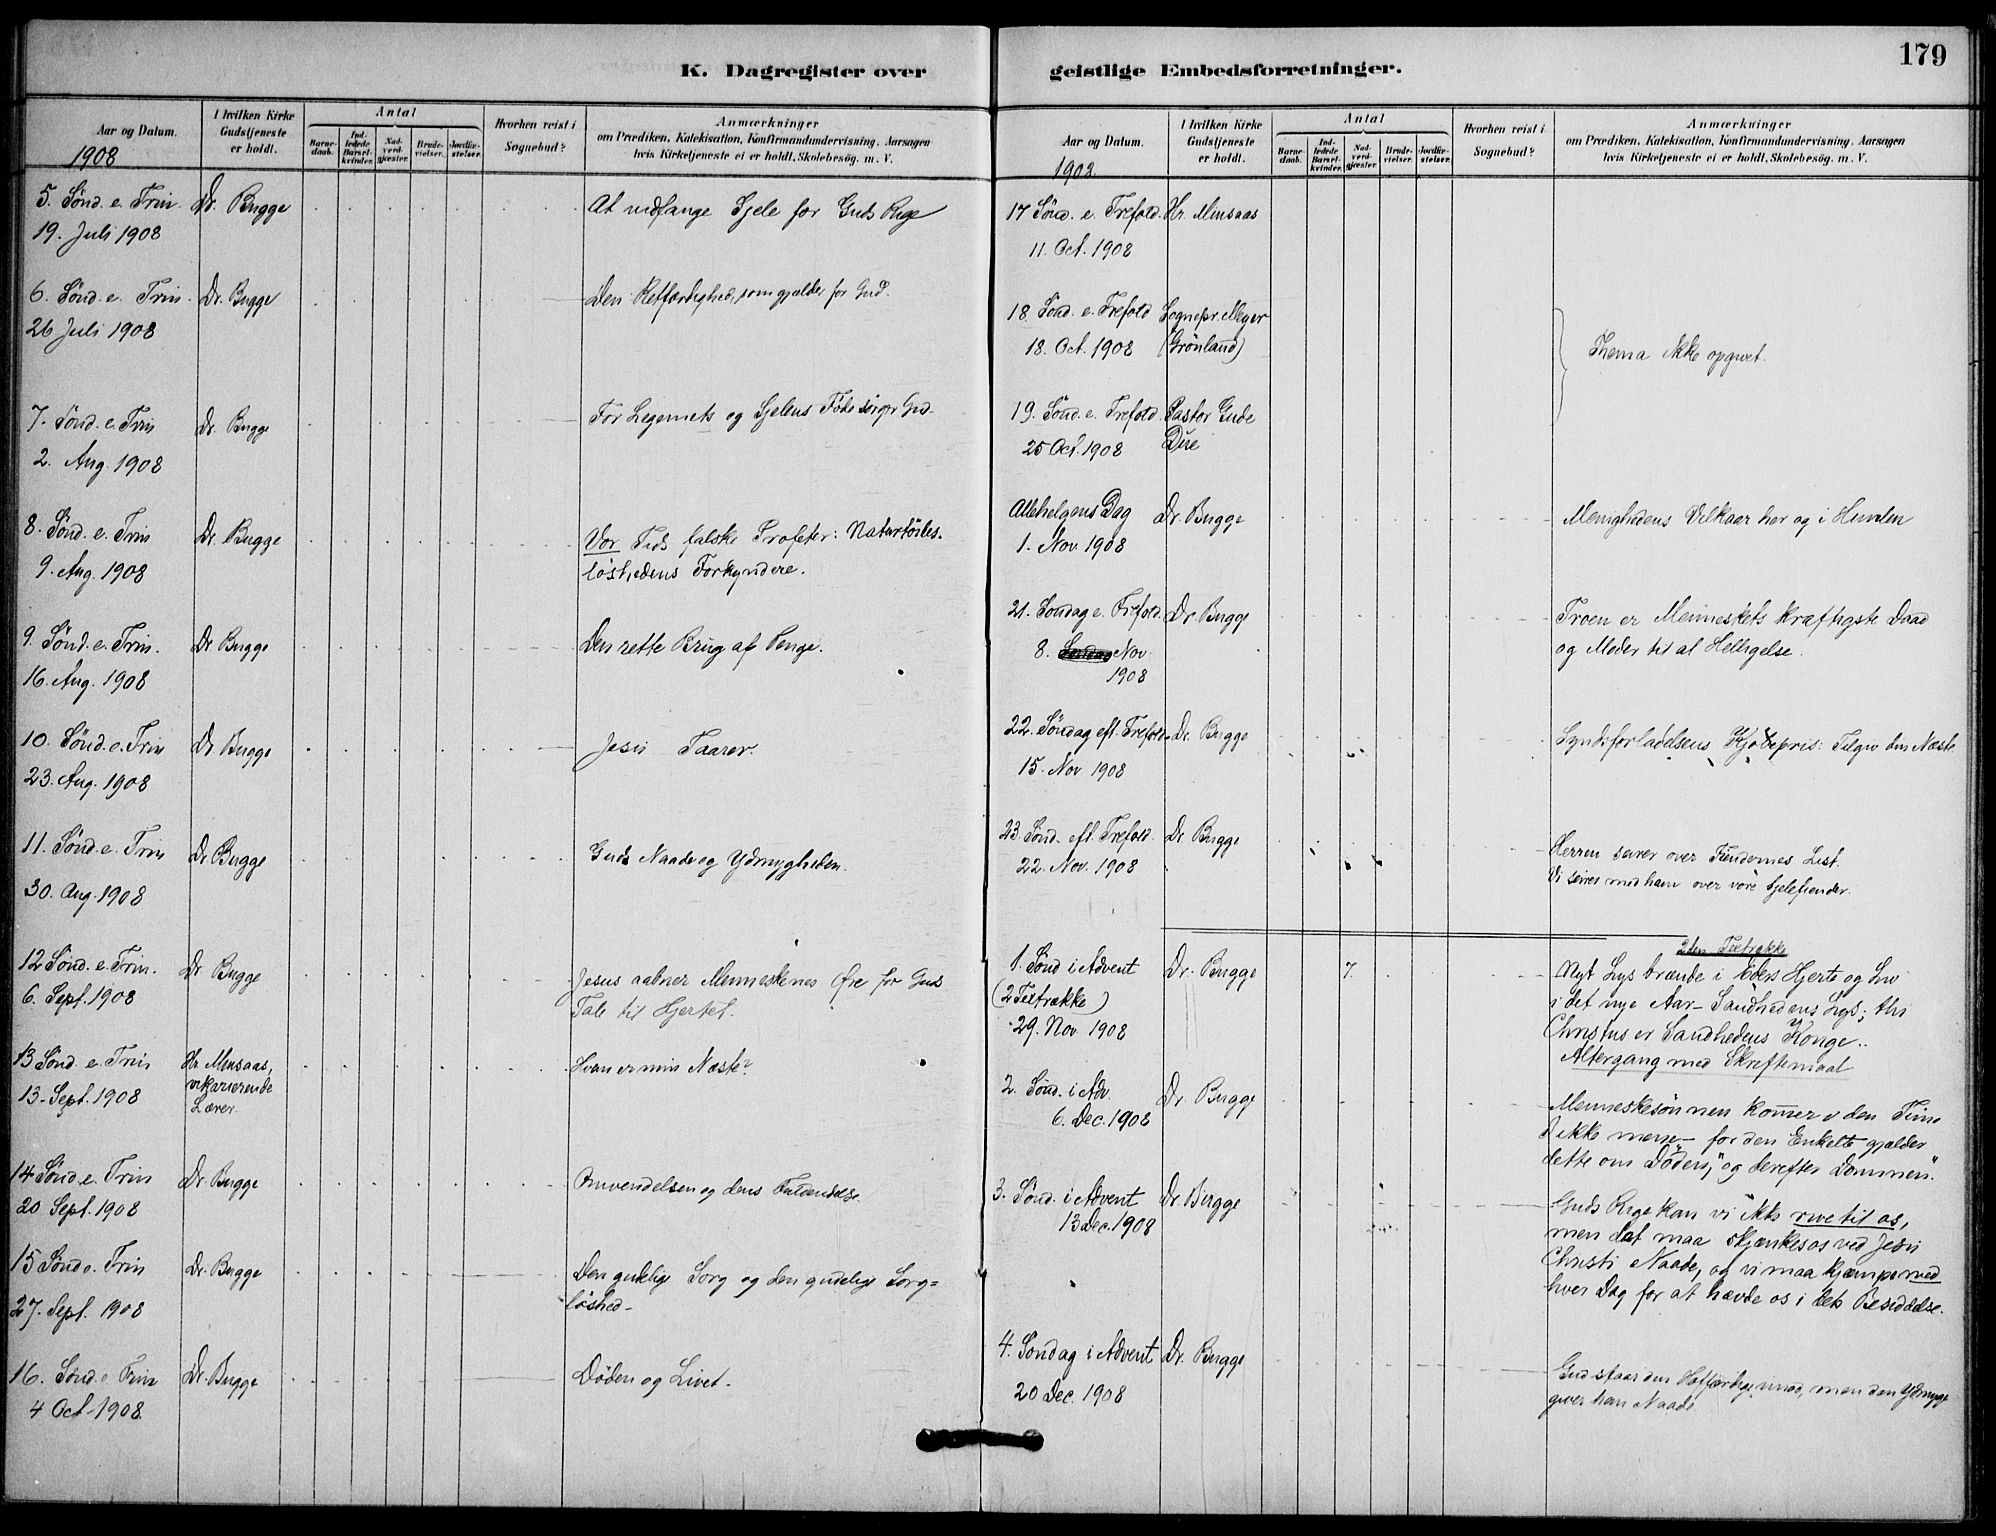 179
K. Dagregister over geistlige Embedsforretninger.
Aar og Datum.
1908
I hvilken Kirke
Gudstjeneste
er holdt.
Antal
Barne-
daab.
Ind-
ledede
Barsel-
kvinder.
Nad-
verd-
gjæster.
Brude-
vielser.
Jordfæ-
stelser.
Hvorhen reist i
Sognebud?
Anmærkninger
om Prædiken, Katekisation, Konfirmandundervisning, Aarsagen
hvis Kirketjeneste ei er holdt, Skolebesög. m. V.
5. Sönd. e. Trin. Dr. Bugge At indfange Sjele for Guds Rige
19. Juli 1908
6. Sönd. e. Trin. Dr. Bugge Den Retfærdighed, som gjælder for Gud.
26 Juli 1908
7. Sönd. e. Trin Dr. Bugge For Legemets og Sjelens Föde sörger Gud.
2. Aug. 1908
8. Sönd. e. Trin Dr. Bugge Vor Tids falske Profeter: Naturtöiles-
9. Aug. 1908 löshedens Forkyndere.
9. Sönd. e. Trin. Dr. Bugge Den rette Brug af Penge.
16. Aug. 1908
10. Sönd. e. Trin Dr Bugge Jesu Taarer.
23. Aug. 1908
11. Sönd. e. Trin Dr Bugge Guds Naade og Ydmygheden.
30. Aug. 1908
12 Sönd. e. Trin. Dr Bugge Jesus aabner Menneskenes Öre for Guds
6. Sept. 1908 Tale til Hjertet.
13 Sönd. e. Trin Hr Minsaas, Hvem er min Næste?
13. Sept. 1908 vikarierende
Lærer.
14 Sönd. e. Trin Dr. Bugge Omvendelsen og dens Fuldendelse
20 Sept. 1908
15 Sönd e. Trin Dr. Bugge Den gudelige Sorg og den gudelige Sorg-
27. Sept. 1908 löshed.
16. Sönd. e Trin Dr. Bugge Döden og Livet.
4 Oct. 1908.
Aar og Datum.
1908.
I hvilken Kirke
Gudstjeneste
er holdt.
Antal
Barne-
daab.
Ind-
ledede
Barsel-
kvinder.
Nad-
verd-
gjæster.
Brude-
vielser.
Jordfæ-
stelser.
Hvorhen reist i
Sognebud?
Anmærkninger
om Prædiken, Katekisation, Konfirmandundervisning, Aarsagen
hvis Kirketjeneste ei er holdt, Skolebesög. m. V.
17 Sönd. e. Trefold. Hr. Minsaas
11. Oct. 1908
18. Sönd. e. Trefold Sognepr. Meyer
18. Oct. 1908 (Grönland)
Thema ikke opgivet.
19. Sönd. e. Trefold. Pastor Gude
25 Oct. 1908
Allehelgens Dag Dr. Bugge Menighedens Vilkaar her og i Himlen
1. Nov. 1908
21. Söndag e. Trefold. Dr Bugge Troen er Menneskets kraftigste Daad
8. Nov. og Moder til al Helligelse.
1908
22. Söndag eft. Trefold. Dr. Bugge Syndsforladelsens Kjöbepris: Tilgiv din Næste
15. Nov 1908
23. Sönd. eft. Trefold. Dr Bugge Herren seirer over Fiendernes List.
22. Nov. 1908 Vi seirer med ham over vore Sjelefiender.
2den Textrække
1. Sönd i Advent Dr. Bugge 7. Nyt Lys brænde i Eders Hjerte og Liv
(2 Textrække) i det nye Aar - Sandhedens Lys; thi
29. Nov 1908 Christus er Sandhedens Konge.
Altergang med Skriftemaal
2. Sönd. i Adv. Dr. Bugge Menneskesönnen kommer den Time
6. Dec. 1908 I ikke mene - for den Enkelte gjælder
dette om Döden, "og derefter Dommen".
3. Sönd. i Advent Dr. Bugge Guds Rige kan vi ikke rive til os,
13 Dec. 1908 men det maa skjænkes os ved Jesu
Christi Naade, og vi maa kjæmpe med
hver Dag for at hævde os i dets Besiddelse.
4. Söndag i Advent Dr. Bugge Gud staar den Hoffærdige imod, men den Ydmyge
20 Dec. 1908 giver han Naade